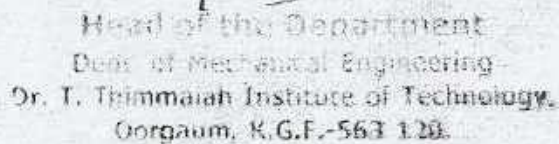 Head of the Department
Dept. of Mechanical Engineering
Dr. T. Thimmaiah Institute of Technology,
Oorgaum, K.G.F.-563 120.